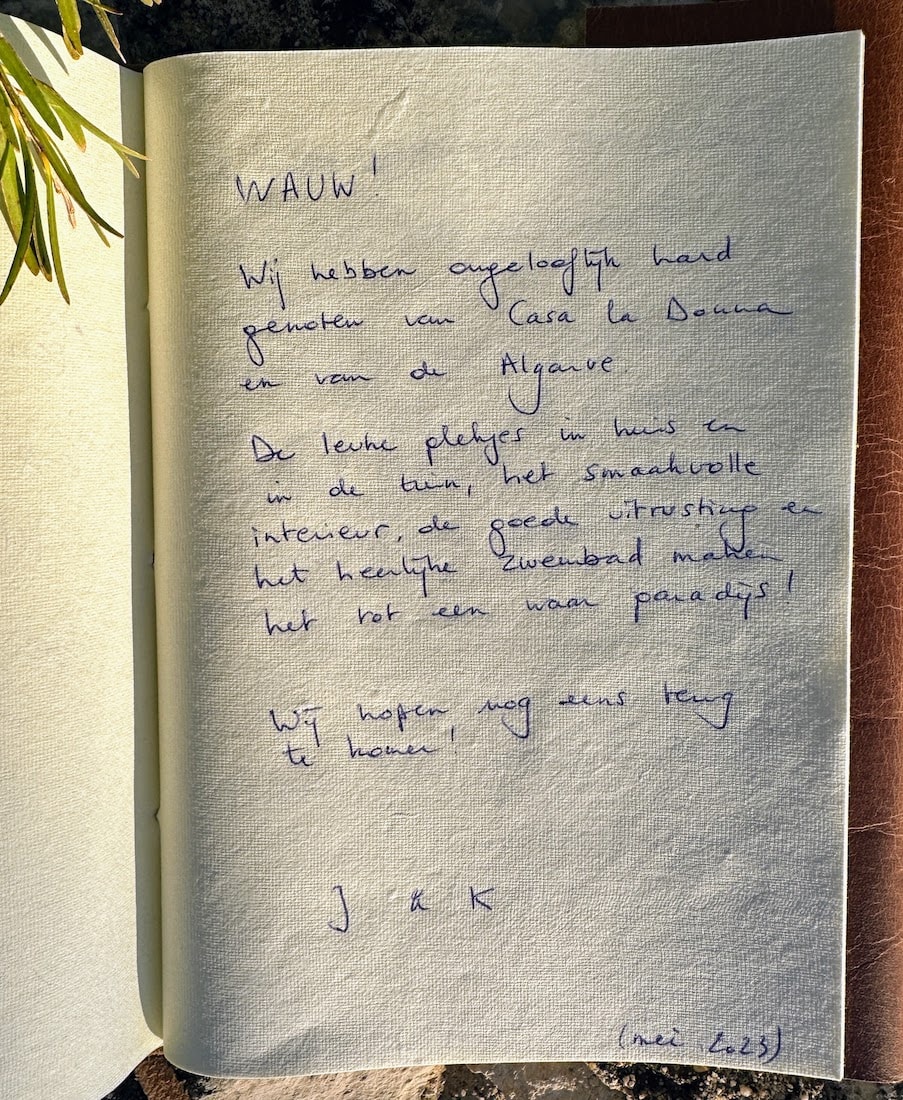 WAUW!
Wij hebben ongelooflijk hard
genoten van Casa la Donna
en van de Algarve.
De leuke plekjes in huis en
in de tuin, het smaakvolle
interieur, de goede uitrusting en
het heerlijke zwembad maken
het tot een waar paradijs!
Wij hopen nog eens terug
te komen!
J & K
(mei 2023)